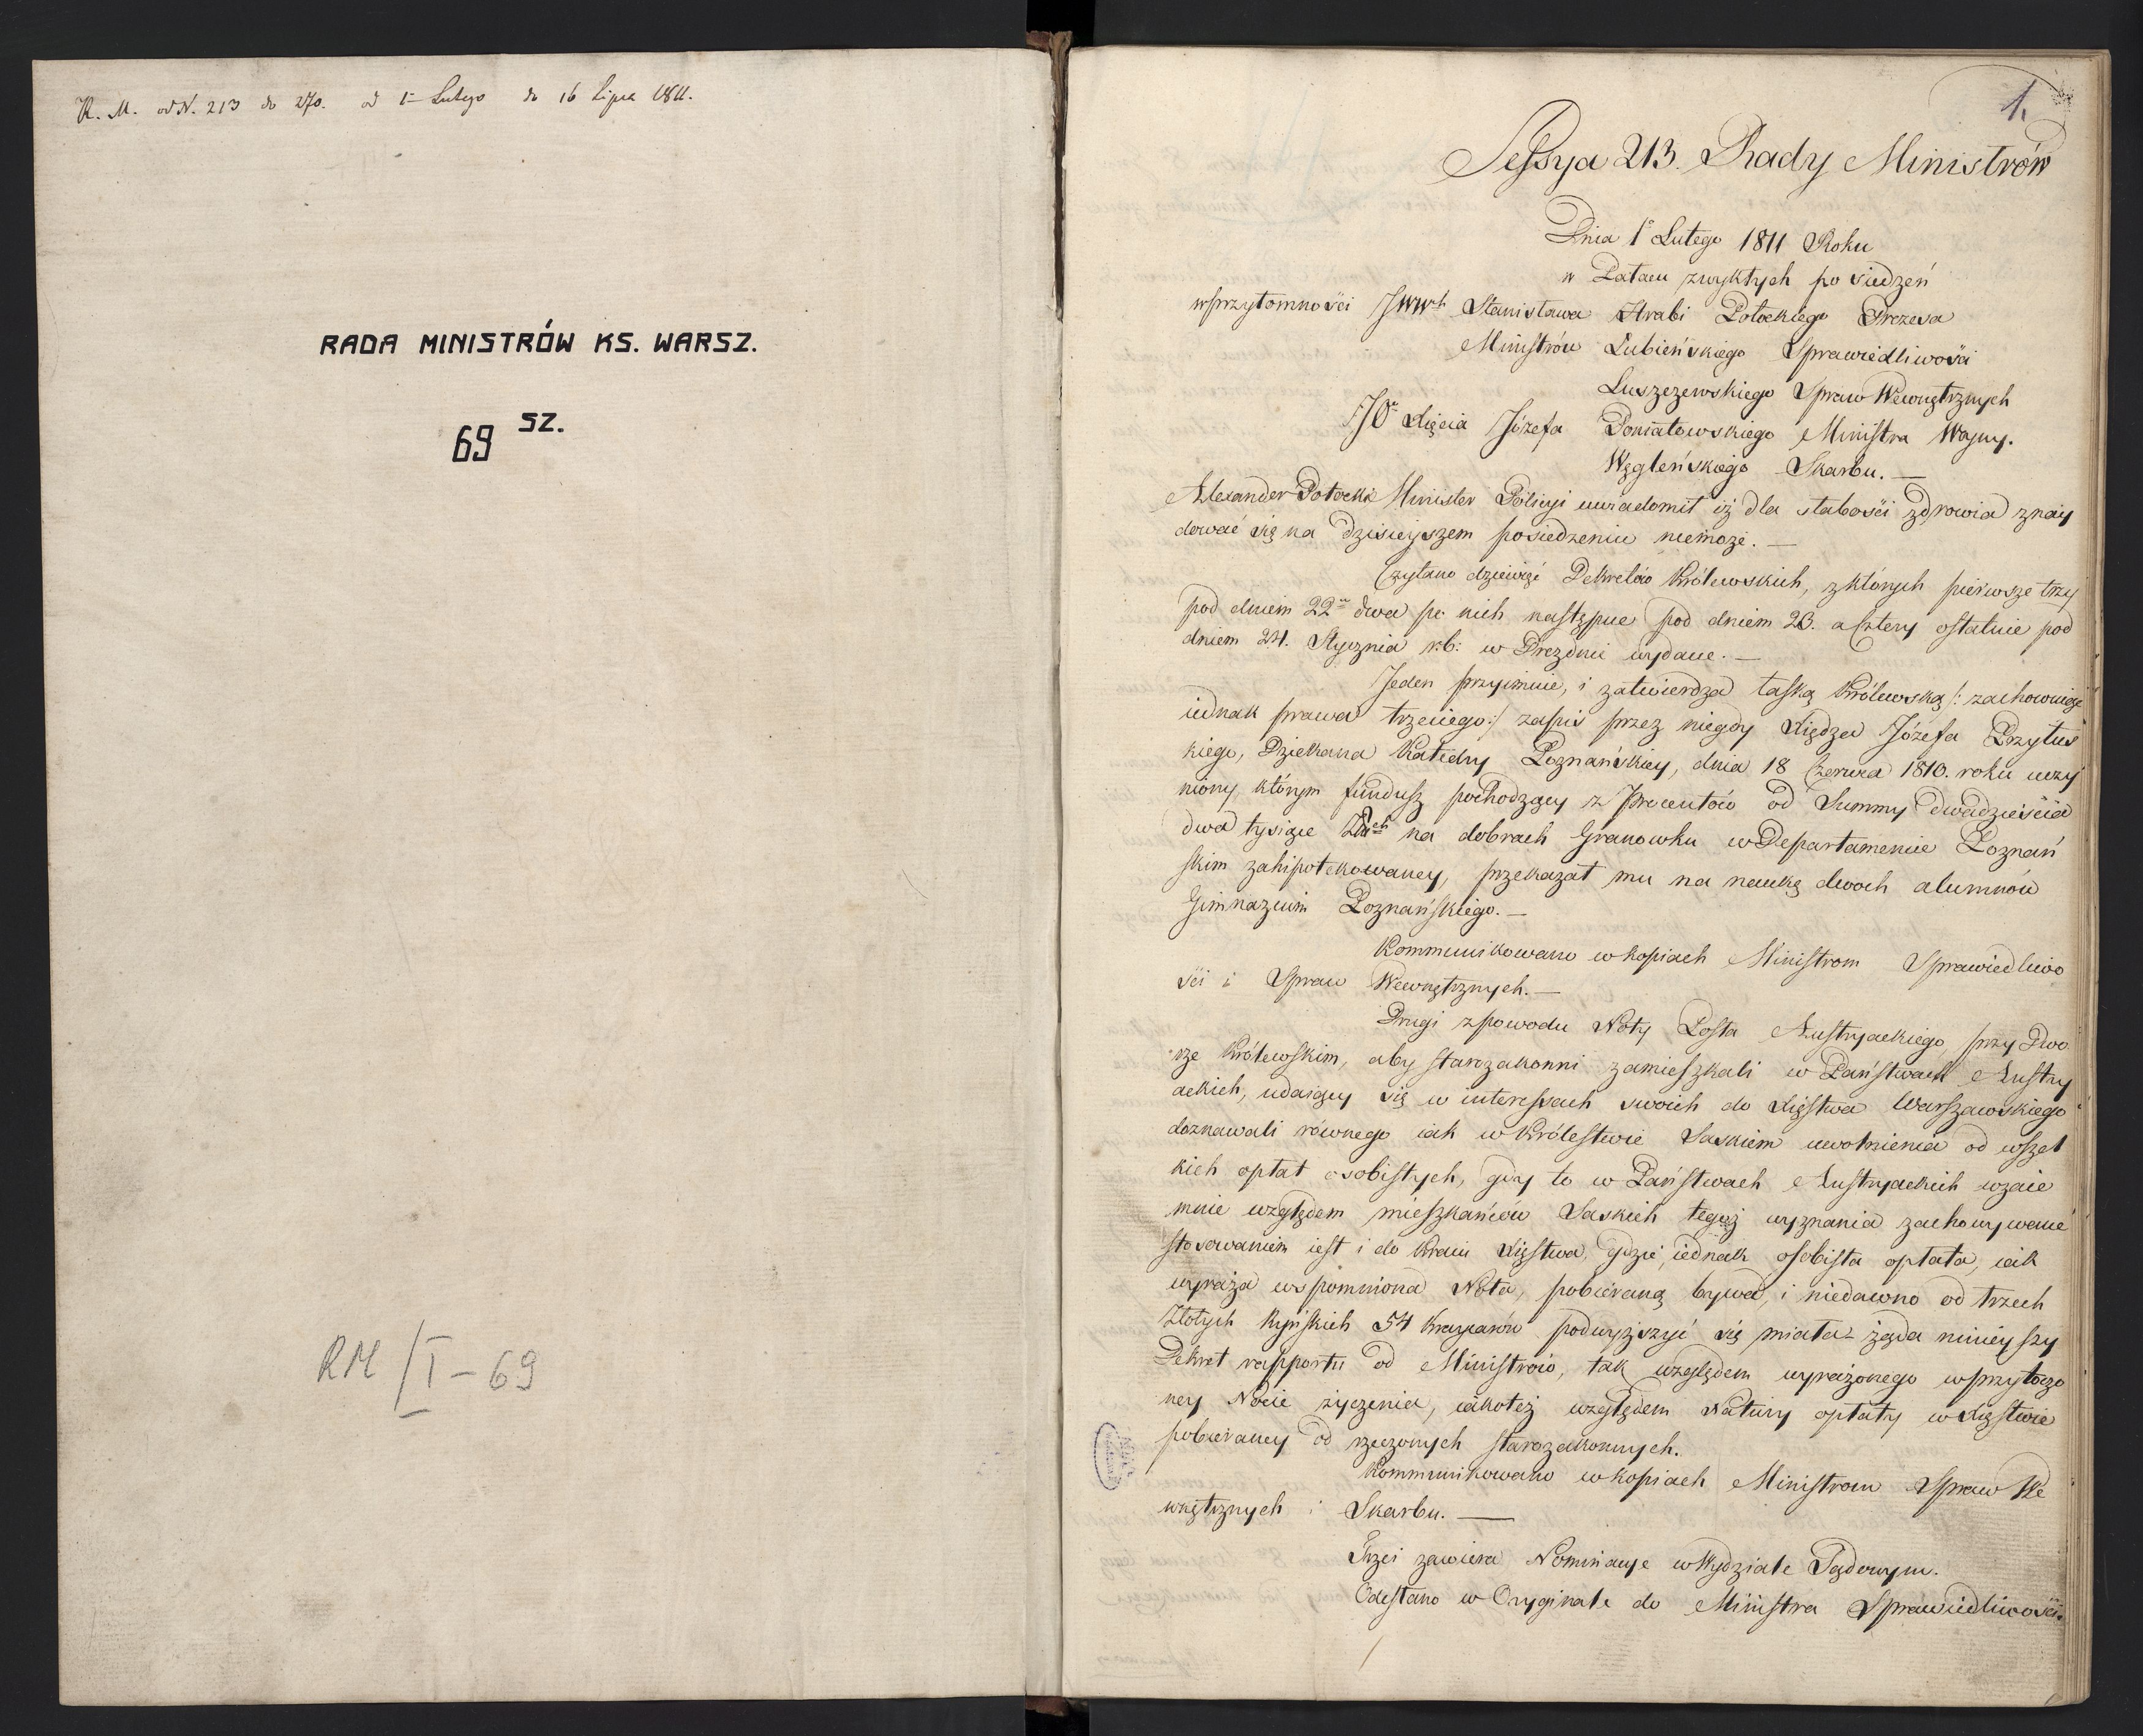 R. M. od N. 213 do 270. od 1 Lutego do 16 Lipca 1811.
RADA MINISTRÓW KS. WARSZ.
69 SZ.
RM/I-69
1.
Sessya 213. Rady Ministrów
Dnia 1º Lutego 1811 Roku
w Pałacu zwykłych posiedzeń
w przytomności JWWch Stanisława Hrabi Potockiego Prezesa
Ministrów Łubieńskiego Sprawiedliwości
Łuszczewskiego Spraw Wewnętrznych
JO Xięcia Józefa Poniatowskiego Ministra Woyny.
Węgleńskiego Skarbu. —
Alexander Potocki Minister Policyi uwiadomił iż dla słabości zdrowia znay
dować się na dzisieyszem posiedzeniu niemoże. —
Czytano dziewięć Dekretów Królewskich, z których pierwsze trzy
pod dniem 22 dwa po nich następne pod dniem 23. a cztery ostatnie pod
dniem 24. Stycznia r. b: w Dreznie wydane. —
Jeden przyimuie, i zatwierdza łaską Królewską /: zachowuiąc
iednak prawa trzeciego :/ zapis przez niegdy Xiędza Józefa Przytus
kiego, Dziekana Katedry Poznańskiey, dnia 18 Czerwca 1810. roku uczy
niony, którym fundusz pochodzący z Procentów od Summy dwadzieścia
dwa tysiące Złch na dobrach Granowku w Departamencie Poznań
skim zahipotekowaney, przekazał mu na naukę dwoch alumnów
Gimnazium Poznańskiego. —
Kommunikowano w kopiach Ministrom Sprawiedliwo
ści i Spraw Wewnętrznych. —
Drugi z powodu Noty Posła Austryackiego, przy Dwo
rze Królewskim, aby starozakonni zamieszkali w Państwach Austry
ackich, udaiący się w interessach swoich do Xięstwa Warszawskiego
doznawali równego iak w Królestwie Saskiem uwolnienia od wszel
kich opłat osobistych, gdy to w Państwach Austryackich wzaie
mnie względem mieszkańców Saskich tegoż wyznania zachowywane
stosowaniem iest i do Kraiu Xięstwa, gdzie iednak osobista opłata, iak
wyraża wspomniona Nota, pobieraną bywa, i niedawno od trzech
Złotych Ryńskich 54 Kraycarów podwyższyć się miała - żąda ninieyszy
Dekret rapportu od Ministrów, tak względem wyrażonego w przytoczo
ney Nocie życzenia, iakoteż względem Natury opłaty w Xięstwie
pobieraney od rzeczonych starozakonnych.
Kommunikowano w kopiach Ministrom Spraw We
wnętrznych i Skarbu. —
Trzeci zawiera Nominacye w Wydziale Sądowym.
Odesłano w Oryginale do Ministra Sprawiedliwości.